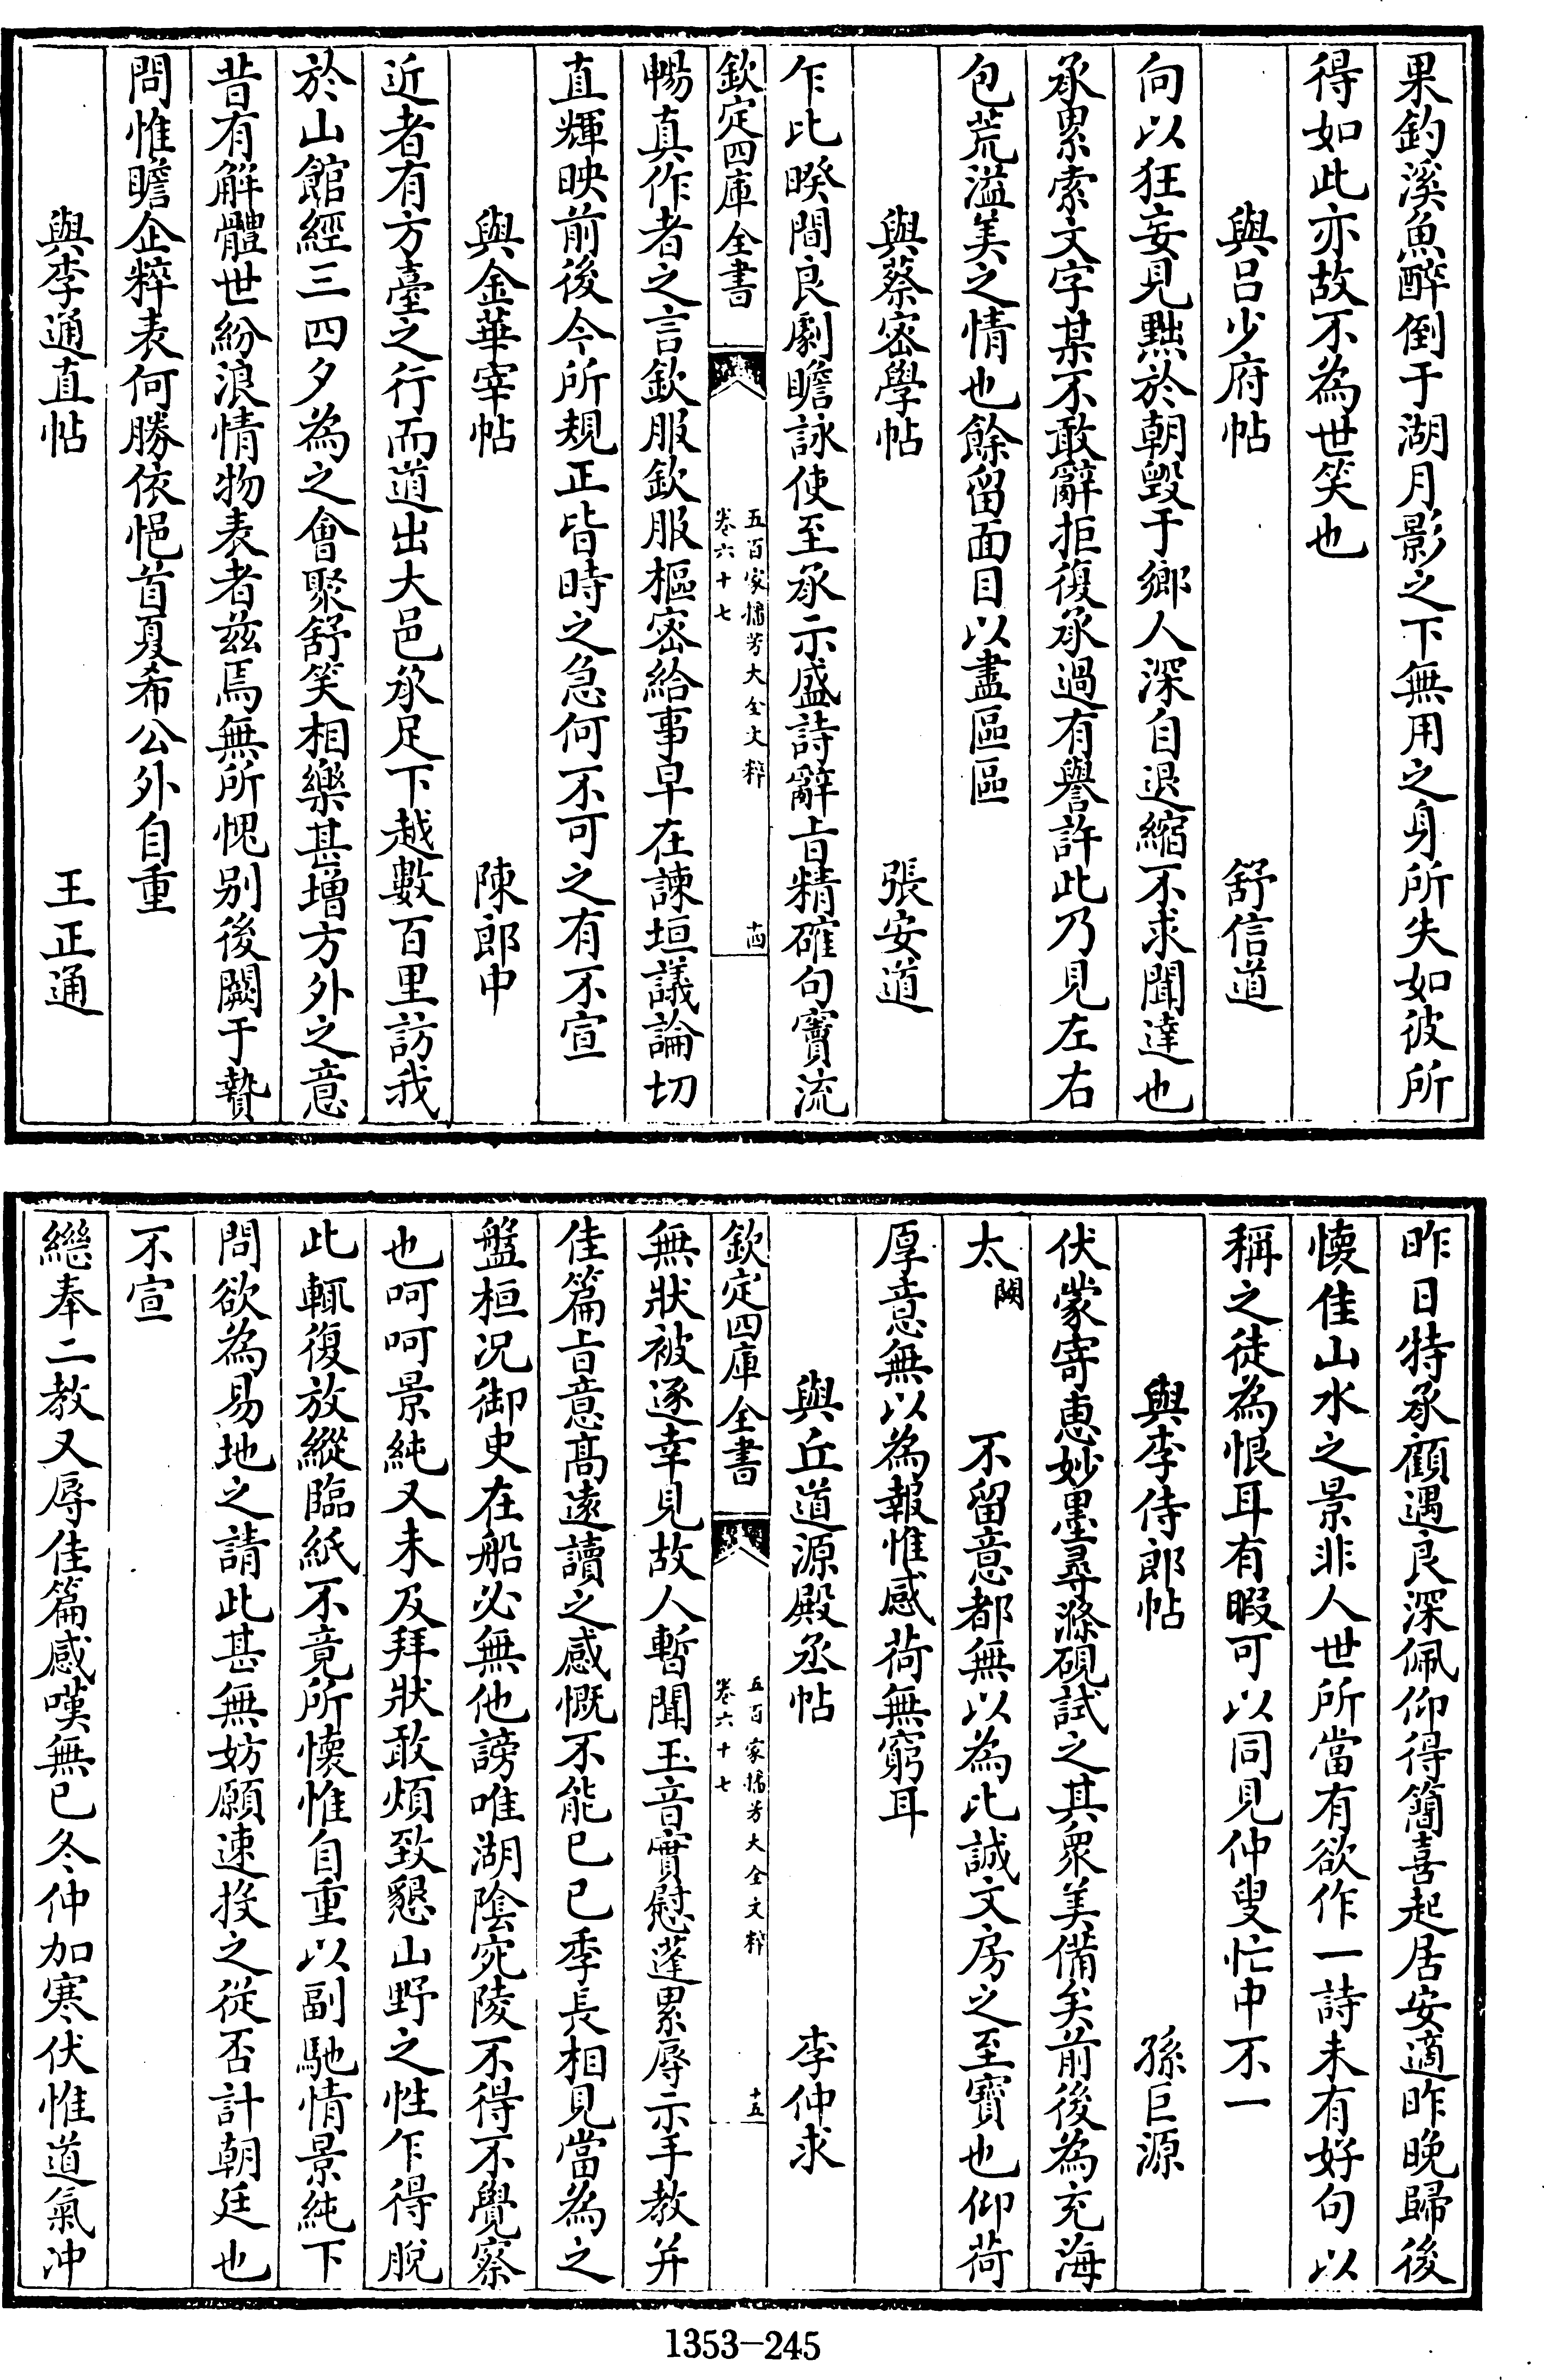 果釣溪魚醉倒于湖月影之下無用之身所失如彼所
得如此亦故不為世笑也
與呂少府帖　舒信道
向以狂妄見黜於朝毀于鄉人深自退縮不求聞達也
承累索文字某不敢辭拒復承過有譽許此乃見左右
包荒溢美之情也餘留面目以盡區區
與蔡密學帖　張安道
乍比暌間良劇瞻詠使至承示盛詩辭旨精確句寶流
欽定四庫全書　五百家播芳大全文粹　卷六十七　十四
暢真作者之言欽服欽服樞密給事早在諫垣議論切
直輝映前後今所規正皆時之急何不可之有不宣
與金華宰帖　陳郎中
近者有方臺之行而道出大邑承足下越數百里訪我
於山館經三四夕為之會聚舒笑相樂甚增方外之意
昔有解體世紛浪情物表者茲焉無所愧别後闕于贄
問惟瞻企粹表何勝依悒首夏希公外自重
與李通直帖　王正通
昨日特承顧遇良深佩仰得簡喜起居安適昨晚歸後
懷佳山水之景非人世所當有欲作一詩未有好句以
稱之徒為恨耳有暇可以同見仲叟忙中不一
與李侍郎帖　孫巨源
伏蒙寄恵妙墨尋滌硯試之其衆美備矣前後為充海
太闕　不留意都無以為此誠文房之至寶也仰荷
厚意無以為報惟感荷無窮耳
與丘道源殿丞帖　李仲求
欽定四庫全書　五百家播芳大全文粹　卷六十七　十五
無狀被逐幸見故人暫聞玉音實慰蓬累辱示手教并
佳篇旨意髙遠讀之感慨不能已已季長相見當為之
盤桓况御史在船必無他謗唯湖陰宛陵不得不覺察
也呵呵景純又未及拜狀敢煩致懇山野之性乍得脫
此輒復放縱臨紙不竟所懷惟自重以副馳情景純下
問欲為易地之請此甚無妨願速投之從否計朝廷也
不宣
繼奉二教又辱佳篇感嘆無已冬仲加寒伏惟道氣冲
1353-245